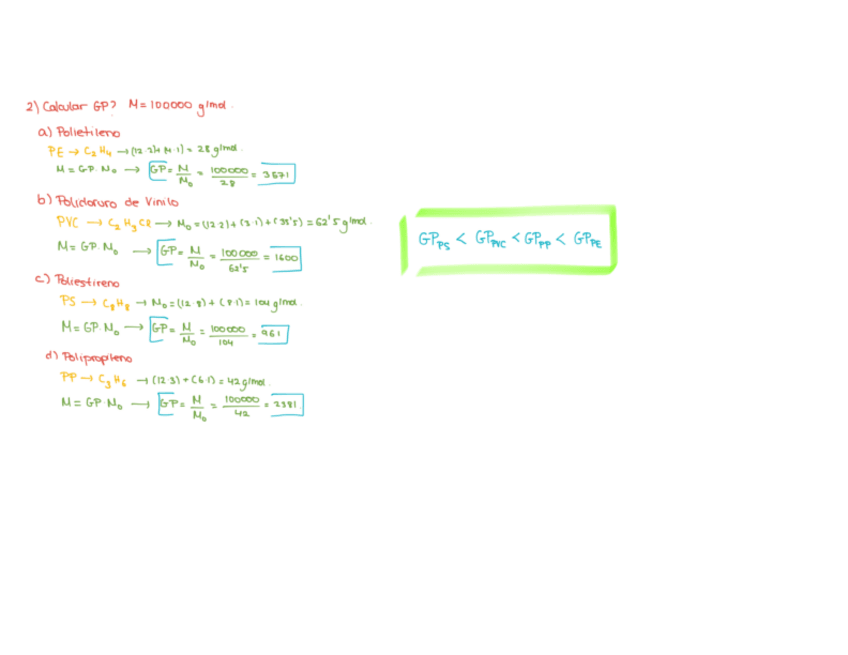 2) Calcular GP? M=100000 g/mol.
a) Polietileno
PE → C2H4 → (12·2)+(4·1) = 28 g/mol.
M = GP·M0 → GP = M/M0 = 100000/28 = 3571
b) Policloruro de Vinilo
PVC → C2H3Cl → M0 = (12·2)+(3·1)+(35'5) = 62'5 g/mol.
M = GP·M0 → GP = M/M0 = 100000/62'5 = 1600
c) Poliestireno
PS → C8H8 → M0 = (12·8)+(8·1) = 104 g/mol.
M = GP·M0 → GP = M/M0 = 100000/104 = 961
d) Polipropileno
PP → C3H6 → (12·3)+(6·1) = 42 g/mol.
M = GP·M0 → GP = M/M0 = 100000/42 = 2381
GP PS < GP PVC < GP PP < GP PE